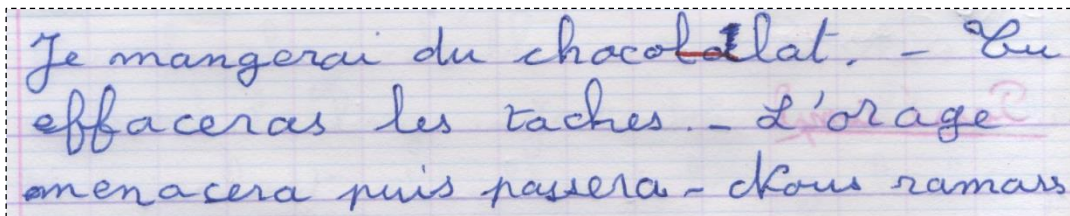 Je mangerai du chocolat. - Tu
effaceras les taches. - L'orage
menacera puis passera - Nous ramass